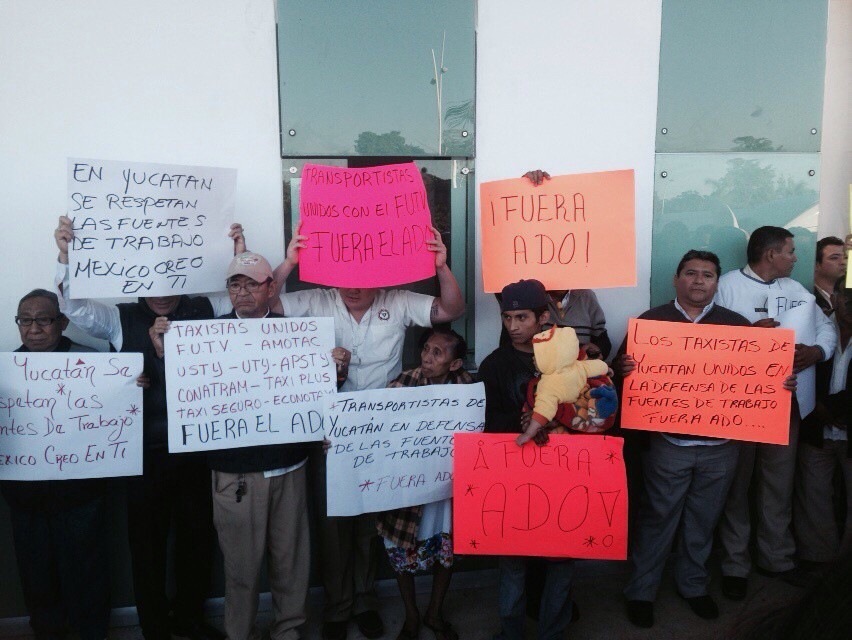 EN YUCATAN
SE RESPETAN
LAS FUENTES
DE TRABAJO
MEXICO CREO
EN TI
TRANSPORTISTAS
UNIDOS CON El FUTV
FUERA EL ADO
¡FUERA
ADO!
Yucatán Se
Respetan las
De Trabajo
México Creo En Ti
TAXISTAS UNIDOS
F.U.T.V. - AMOTAC
USTY - UTY - APSTY
CONATRAM - TAXI PLUS
TAXI SEGURO - ECONOTAXI
FUERA EL ADO
TRANSPORTISTAS DE
YUCATÁN EN DEFENSA
DE LAS FUENTES
DE TRABAJO
*FUERA ADO
¡FUERA *
*ADO!
* *
LOS TAXISTAS DE
YUCATAN UNIDOS EN
LA DEFENSA DE LAS
FUENTES DE TRABAJO
FUERA ADO....